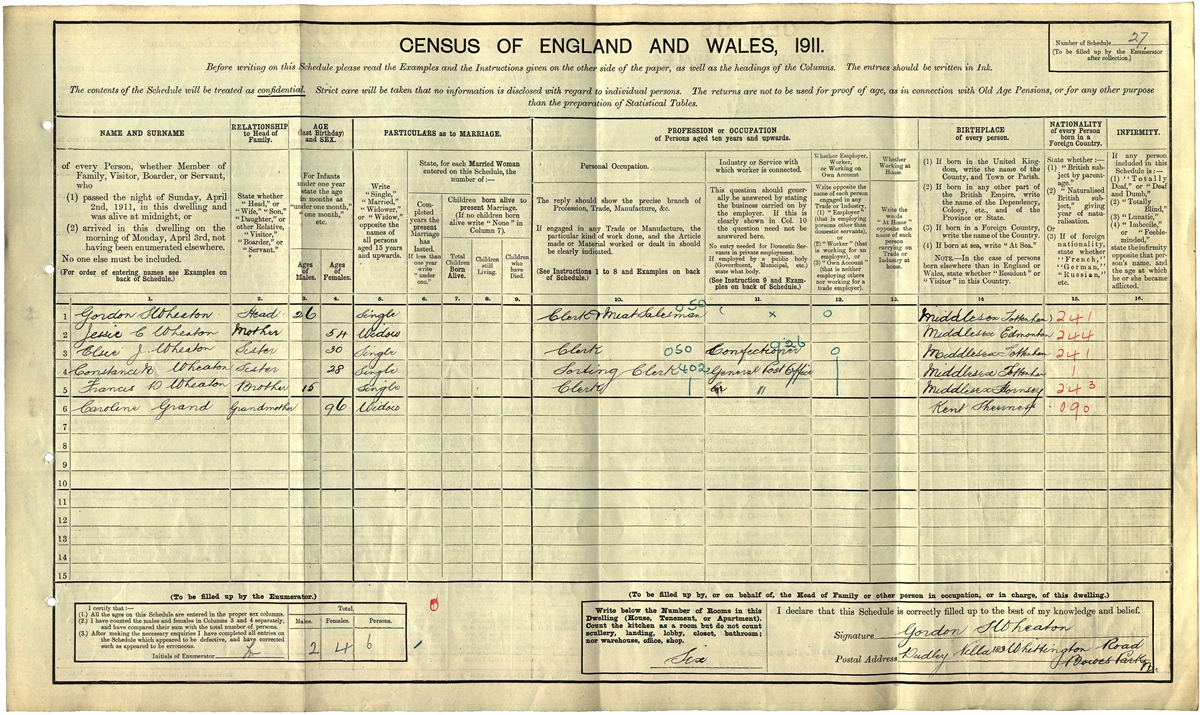 CENSUS OF ENGLAND AND WALES, 1911.
Number of Schedule 27
(To be filled up by the Enumerator
after collection.)
Before writing on this Schedule please read the Examples and the Instructions given on the other side of the paper, as well as the headings of the Columns. The entries should be written in Ink.
The contents of the Schedule will be treated as confidential. Strict care will be taken that no information is disclosed with regard to individual persons. The returns are not to be used for proof of age, as in connection with Old Age Pensions, or for any other purpose
than the preparation of Statistical Tables.
NAME AND SURNAME
of every Person, whether Member of
Family, Visitor, Boarder, or Servant,
who
(1) passed the night of Sunday, April
2nd, 1911, in this dwelling and
was alive at midnight, or
(2) arrived in this dwelling on the
morning of Monday, April 3rd, not
having been enumerated elsewhere.
No one else must be included.
(For order of entering names see Examples on
back of Schedule.)
RELATIONSHIP
to Head of
Family.
State whether
"Head," or
"Wife," "Son,"
"Daughter," or
other Relative,
"Visitor,"
"Boarder," or
"Servant."
AGE
(last Birthday)
and SEX.
For Infants
under one year
state the age
in months as
"under one month,"
"one month,"
etc.
Ages
of
Males.
Ages
of
Females.
PARTICULARS as to MARRIAGE.
Write
"Single,"
"Married,"
"Widower,"
or "Widow,"
opposite the
names of
all persons
aged 15 years
and upwards.
State, for each Married Woman
entered on this Schedule, the
number of:—
Completed
years the
present
Marriage
has
lasted.
If less than
one year
write
"under
one."
Children born alive to
present Marriage.
(If no children born
alive write "None" in
Column 7).
Total
Children
Born
Alive.
Children
still
Living.
Children
who
have
Died.
PROFESSION or OCCUPATION
of Persons aged ten years and upwards.
Personal Occupation.
The reply should show the precise branch of
Profession, Trade, Manufacture, &c.
If engaged in any Trade or Manufacture, the
particular kind of work done, and the Article
made or Material worked or dealt in should
be clearly indicated.
(See Instructions 1 to 8 and Examples on back
of Schedule.)
Industry or Service with
which worker is connected.
This question should generally
be answered by stating
the business carried on
by the employer. If this is
clearly shown in Col. 10
the question need not be
answered here.
No entry needed for Domestic Servants
in private employment.
If employed by a public body
(Government, Municipal, etc.)
state what body.
(See Instruction 9 and Examples
on back of Schedule.)
Whether Employer,
Worker,
or Working on Own
Account
Write opposite the
name of each person
engaged in any
Trade or Industry,
(1) "Employer"
(that is employing
persons other than
domestic servants),
or
(2) "Worker" (that
is working for an
employer), or
(3) "Own Account"
(that is neither
employing others
nor working for a
trade employer).
Whether
Working at
Home.
Write the
words
"At Home"
opposite the
name of each
person
carrying on
Trade or
Industry at
home.
BIRTHPLACE
of every person.
(1) If born in the United Kingdom,
write the name of the
County, and Town or Parish.
(2) If born in any other part of
the British Empire, write
the name of the Dependency,
Colony, etc., and of the
Province or State.
(3) If born in a Foreign Country,
write the name of the Country.
(4) If born at sea, write "At Sea."
NOTE.—In the case of persons
born elsewhere than in England or
Wales, state whether "Resident" or
"Visitor" in this Country.
NATIONALITY
of every Person
born in a
Foreign Country.
State whether:—
(1) "British
subject by parentage,"
(2) "Naturalised
British
subject," giving
year of naturalisation.
Or
(3) If of foreign
nationality,
state whether
"French,"
"German,"
"Russian,"
etc.
INFIRMITY.
If any person
included in this
Schedule is:—
(1) "Totally
Deaf," or "Deaf
and Dumb,"
(2) "Totally
Blind,"
(3) "Lunatic,"
(4) "Imbecile,"
or "Feeble-minded,"
state the infirmity
opposite that person's
name, and
the age at which
he or she became
afflicted.
1. 2. 3. 4. 5. 6. 7. 8. 9. 10. 11. 12. 13. 14 15. 16.
1 Gordon S Wheaton Head 26 Single Clerk Meat Salesman 050 x 0 Middlesex Tottenham 241
2 Jessie C Wheaton Mother 54 Widow Middlesex Edmonton 244
3 Elsie J Wheaton Sister 30 Single Clerk 050 Confectioner 926 0 Middlesex Tottenham 241
4 Constance Wheaton Sister 28 Single Sorting Clerk 402 General Post Office Middlesex Tottenham 1
5 Francis D Wheaton Brother 15 Single Clerk " Middlesex Hornsey 243
6 Caroline Grand Grandmother 96 Widow Kent Sheerness 090
7
8
9
10
11
12
13
14
15
(To be filled up by the Enumerator.)
I certify that:—
(1.) All the ages on this Schedule are entered in the proper sex columns.
(2.) I have counted the males and females in Columns 3 and 4 separately,
and have compared their sum with the total number of persons.
(3.) After making the necessary enquiries I have completed all entries on
the Schedule which appeared to be defective, and have corrected
such as appeared to be erroneous.
Initials of Enumerator
Total.
Males. Females. Persons.
2 4 6
(To be filled up by, or on behalf of, the Head of Family or other person in occupation, or in charge, of this dwelling.)
Write below the Number of Rooms in this
Dwelling (House, Tenement, or Apartment).
Count the kitchen as a room but do not count
scullery, landing, lobby, closet, bathroom;
nor warehouse, office, shop.
Six
I declare that this Schedule is correctly filled up to the best of my knowledge and belief.
Signature Gordon S Wheaton
Postal Address Dudley Villa 183 Whittington Road
Bowes Park N.